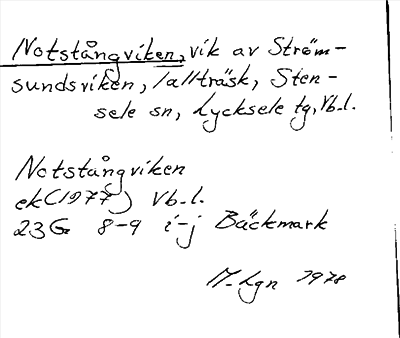 Notstångviken, vik av Ström-
sundsviken, /allträsk, Sten-
sele sn, Lycksele tg, Vb.l.
Notstångviken
ek (1977) Vb.l.
23G 8-9 i-j Bäckmark
M-Lgn 1978